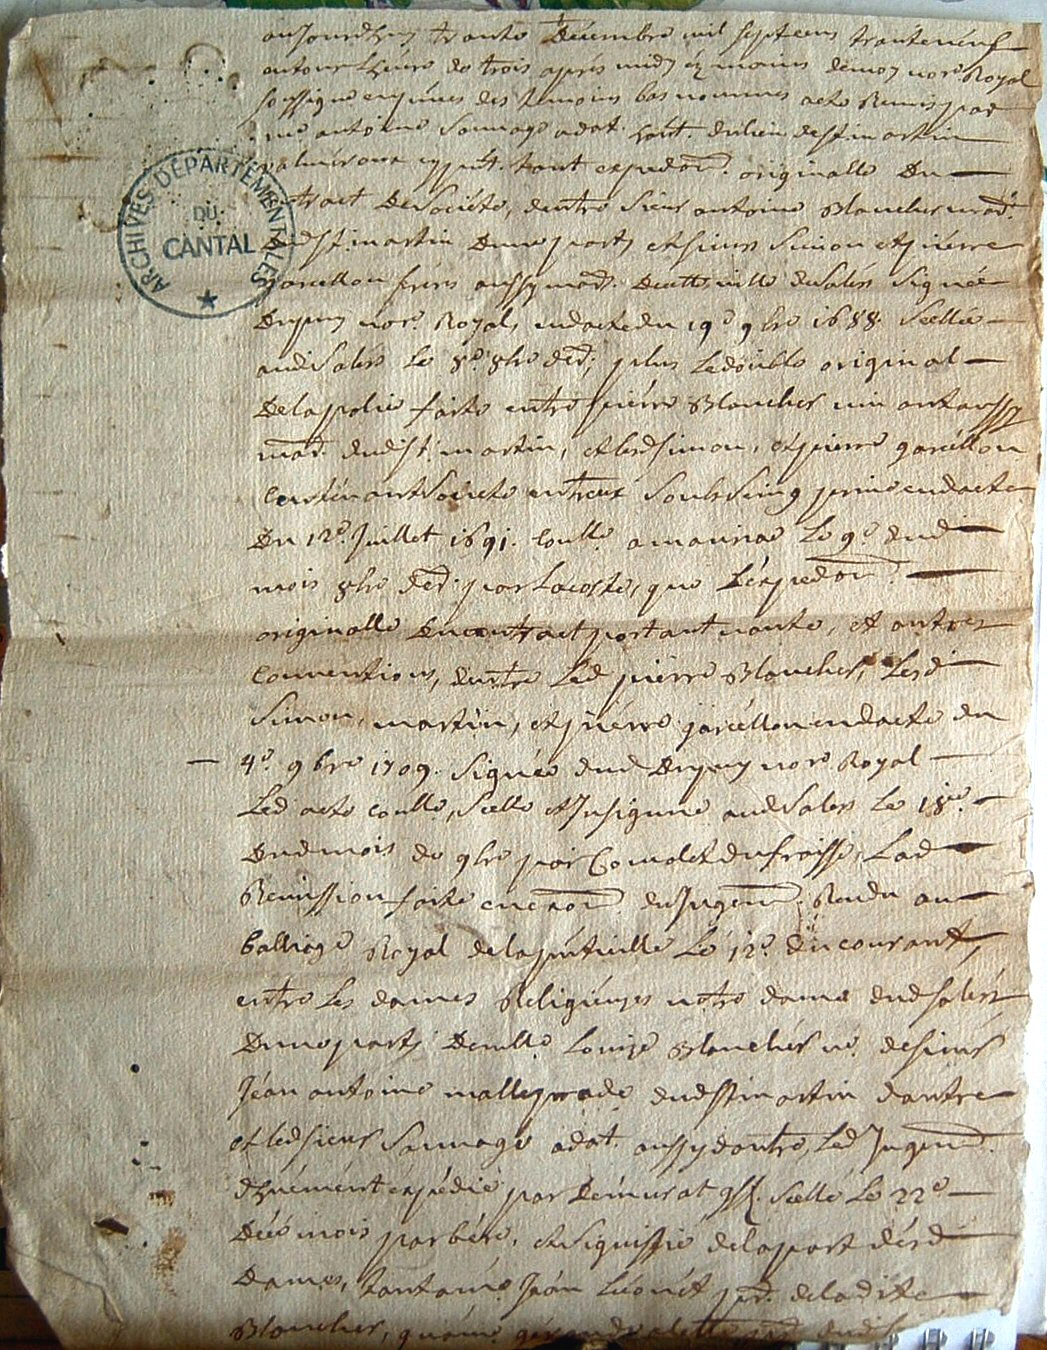 aujourdhuy trante Décembre mil sept cens tranteneuf
autour lheure de trois après midy ez mains de moy nore Royal
soussigné en pnce des temoins bas nommes acte Remis par
me antoine Sauvage adat. du lieu de st. martin
valmeroux tout expedon. originalle Du
tract De Societe, dentre sieur antoine Blancher mard.
dud st. martin Dune party et sieurs Simon et pierre
garcellon freres aussy mards. De cette ville de Salers signée
Dupuy nore. Royal, en datte du 19e 9bre 1688. Scellée
audi Salers le 8e 8bre ded; plus Le double original
De la police faite entre pierre Blancher
mard. dud st. martin, et lesd simon, et pierre garcellon
Contenant Societe entreux Soubs Seing prive en datte
Du 12e. Juillet 1691. Coulle. a mauriac Le 9e dud
mois 8bre ded. par Lacoste, que L'expedon.
originalle Du contract portant vante, et autres
Conventions, dentre Led pierre Blancher, Lesd
Simon, martin, et pierre garcellon en datte du
4e. 9bre 1709. Signée dud Dupuy nore Royal
Led acte Coulle, Scelle et Insignue aud Salers Le 18e.
Dud mois de 9bre par Comolet dufraisse, Lad
Remission faite en exon. du Jugem. Rendu au
balliage Royal de la Le 12e. du courant,
entre Les dames Religieuzes notre dame dud Salers
Dune party Demlle. Louize Blancher ve. de sieur
Jean antoine malleprade dud st martin dautre
et led sieur Sauvage adat. aussy dautre, Led Jugem.
dhuement expédié par Demurat gff. Scellé Le 22e
Dud mois par bére, et Signiffié de la part desd
Dames, tant a me Jean Léonet pr. de ladite
Blancher, qua me
ARCHIVES DÉPARTEMENTALES
DU
CANTAL